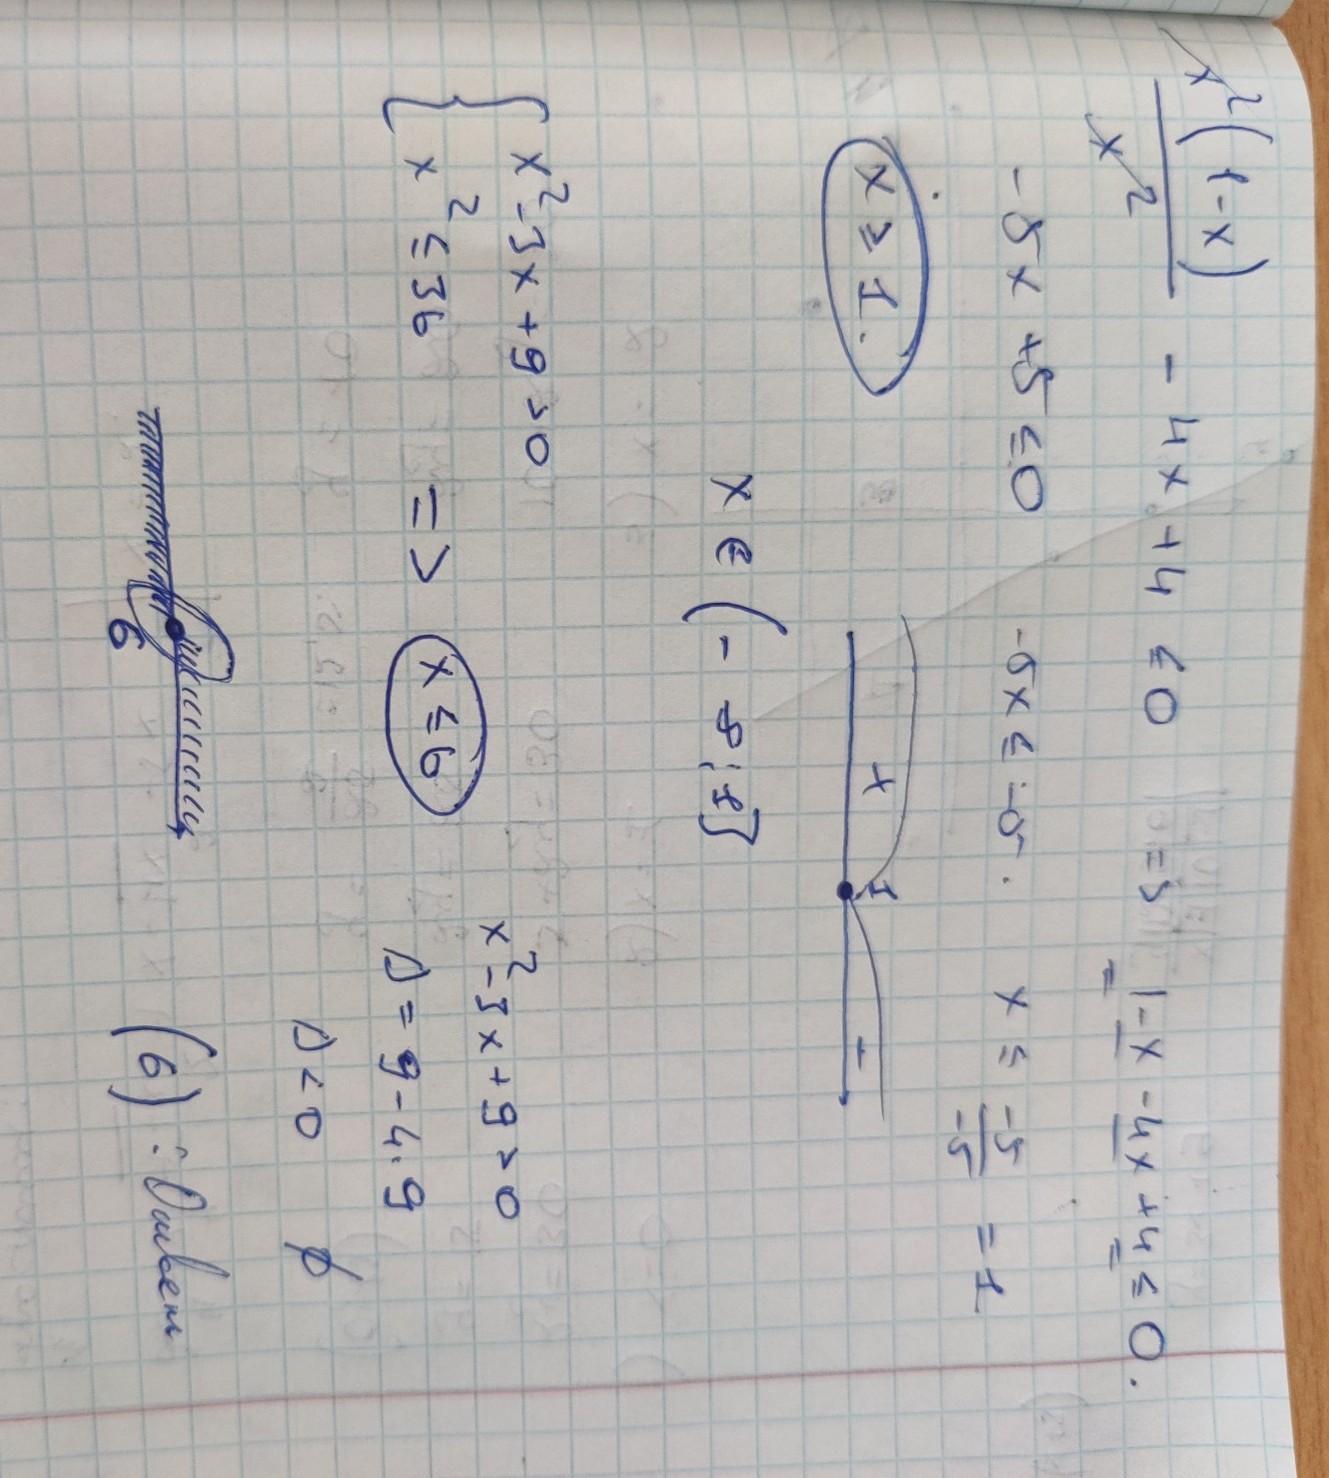 x²(1-x)/x² - 4x + 4 ≤ 0    1-x-4x+4 ≤ 0.
-5x+5 ≤ 0    -5x ≤ -5.    x ≤ -5/-5 = 1
x ≥ 1.
+ 1 -
x ∈ (-∞; 1]
{ x²-3x+9>0
x² ≤ 36 => x ≤ 6
x²-3x+9>0
D = 9-4·9
D<0 ∅
6
(6) : Ответ